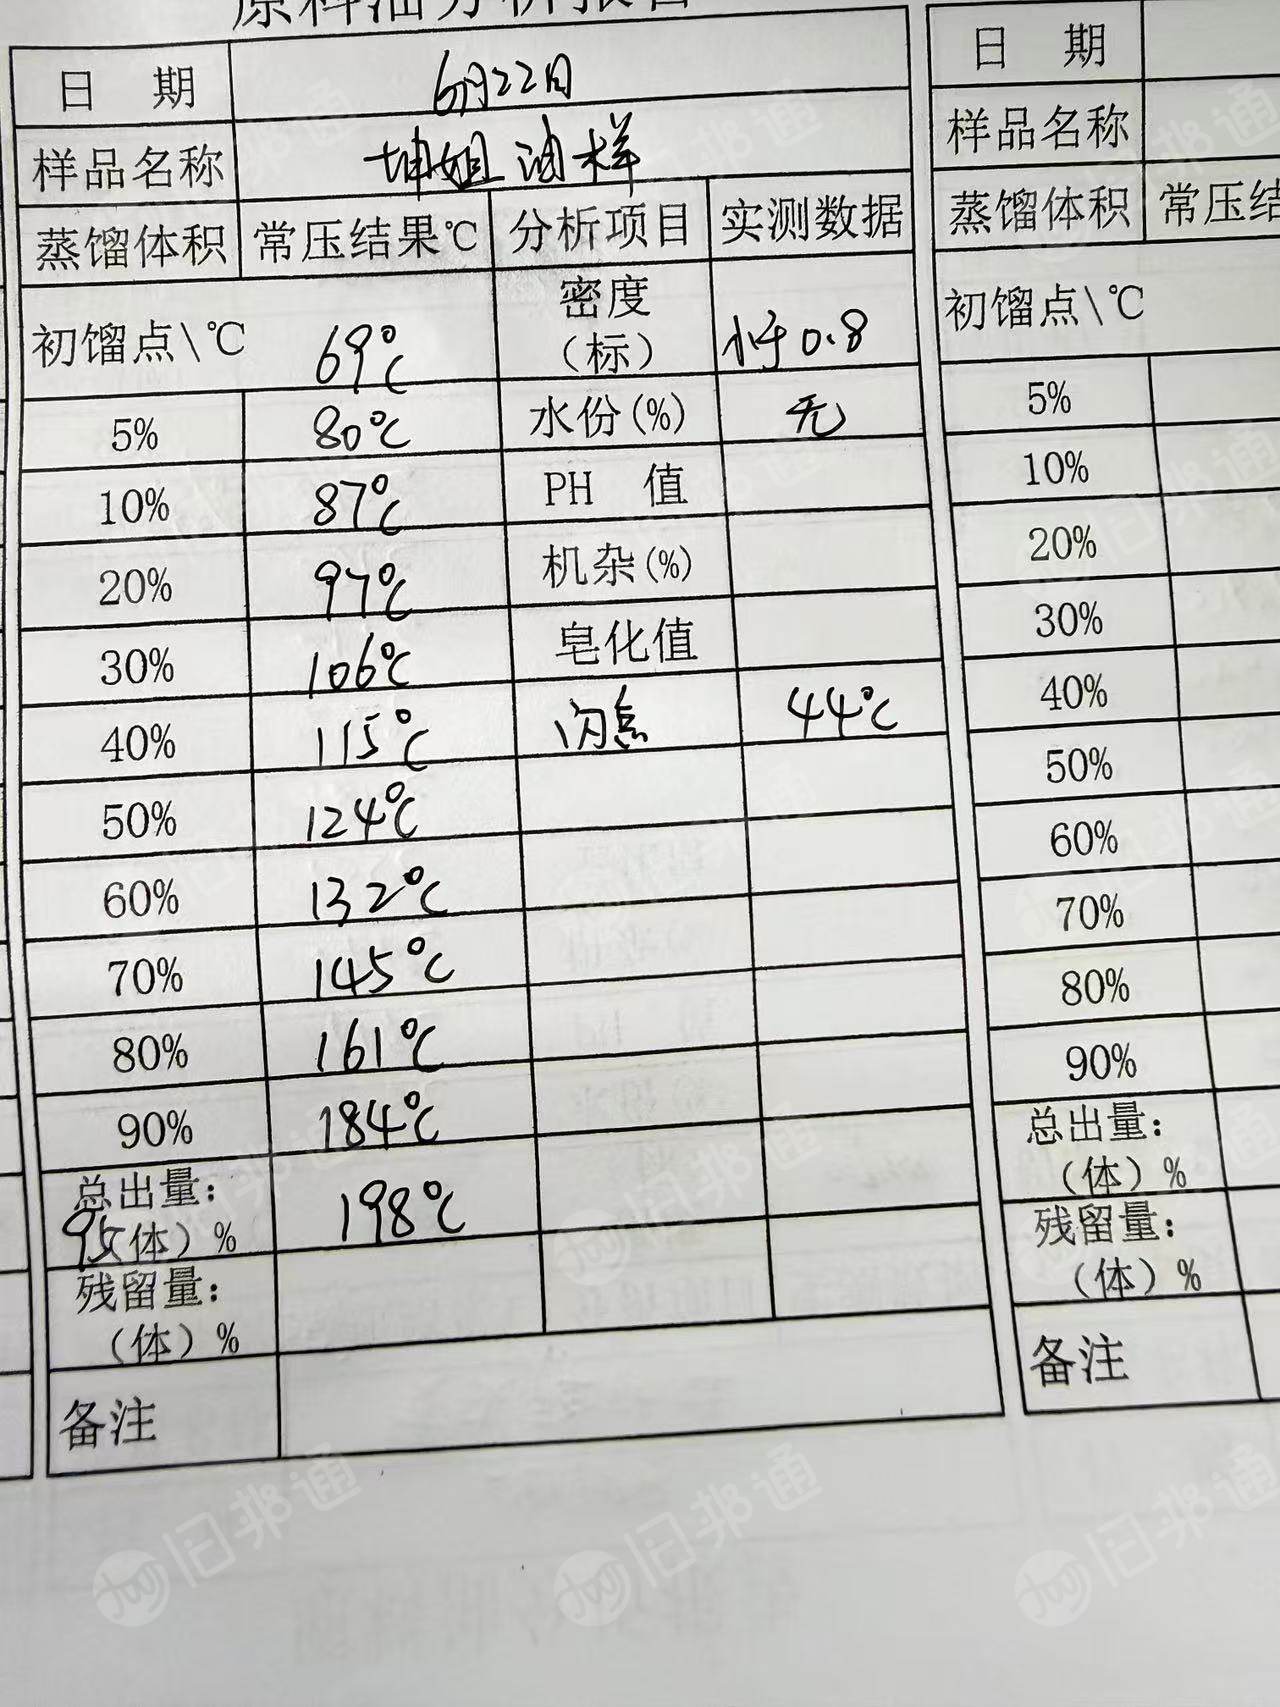 原料油分析报告
日 期 6月22日
样品名称 坤姐油样
蒸馏体积 常压结果℃ 分析项目 实测数据
初馏点\℃ 69℃ 密度(标) 小于0.8
5% 80℃ 水份(%) 无
10% 87℃ PH 值
20% 97℃ 机杂(%)
30% 106℃ 皂化值
40% 115℃ 闪点 44℃
50% 124℃
60% 132℃
70% 145℃
80% 161℃
90% 184℃
总出量:
95(体)% 198℃
残留量:
(体)%
备注
日 期
样品名称
蒸馏体积 常压结
初馏点\℃
5%
10%
20%
30%
40%
50%
60%
70%
80%
90%
总出量:
(体)%
残留量:
(体)%
备注
旧邦通
旧邦通
旧邦通